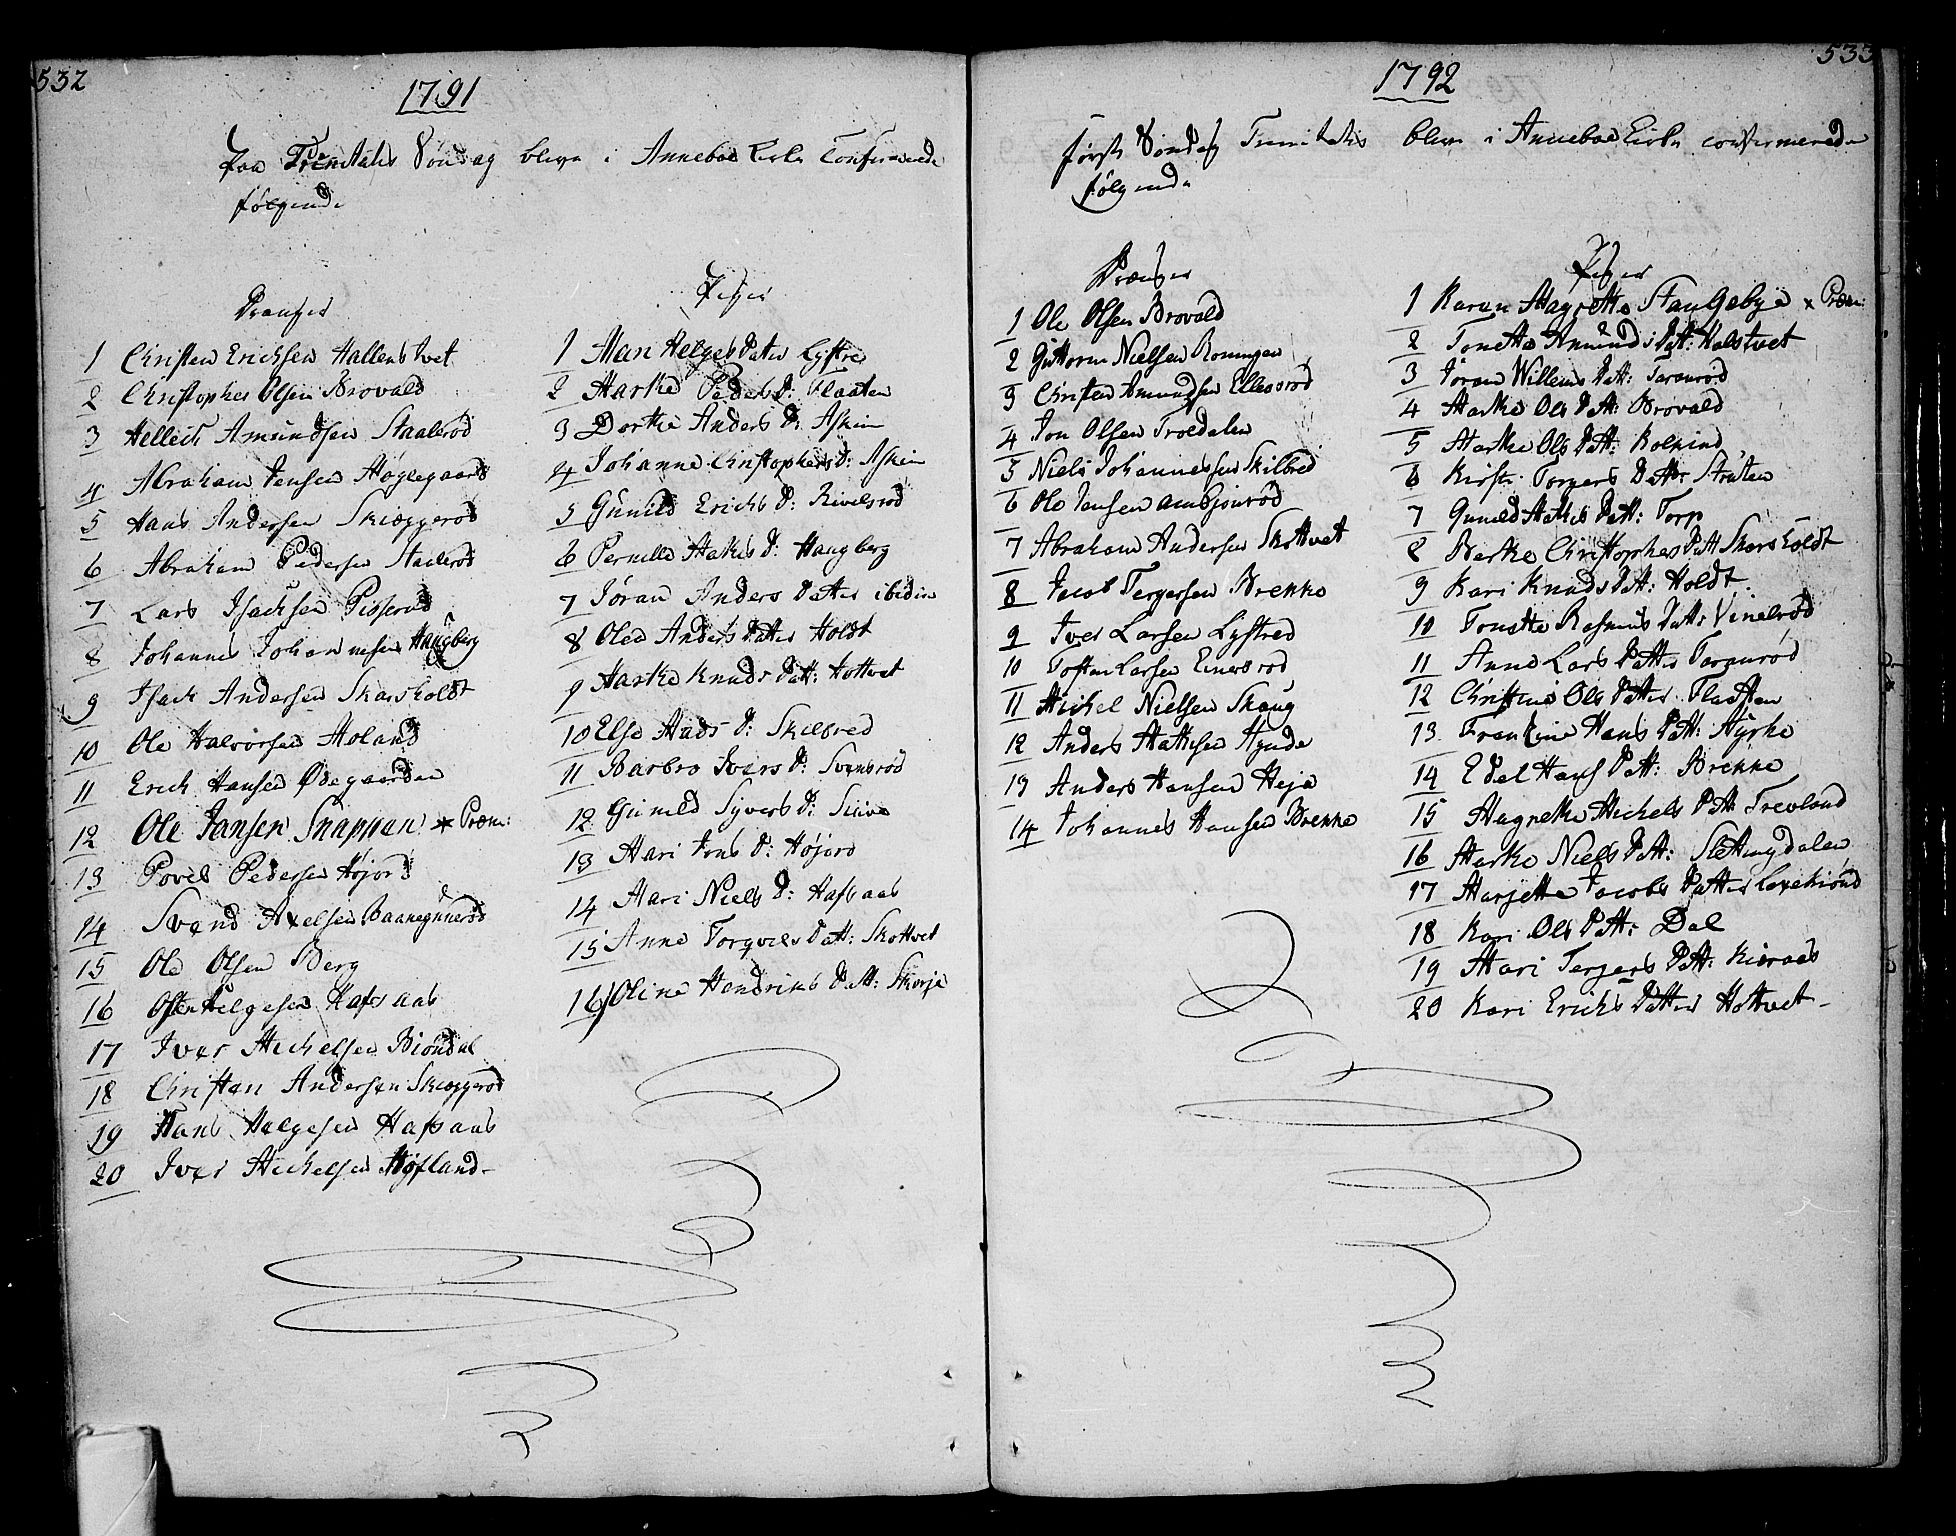 532
1791
Paa Trinitatis Søndag bleve i Anneboe Kirke Confirmerede
følgende
Drenger
1 Christen Erichsen Hallenstvet
2 Christopher Olsen Brovald
3 Hellech Amundsen Staalerød
4 Abraham Jensen Høglegaard
5 Hans Andersen Skieggerød
6 Abraham Pedersen Staalerød
7 Lars Isachsen Pisserød
8 Johannes Johannesen Haugberg
9 Isach Andersen Skarsholdt
10 Ole Halvorsen Moland
11 Erich Hansen Ødegaarden
12 Ole Jansen Snappen × Præm:
13 Povel Pedersen Højord
14 Svend Axelsen Baanegunerød
15 Ole Olsen Berg
16 Osten Helgesen Hafsaas
17 Iver Michelsen Biøndal
18 Christen Andersen Skieggerød
19 Hans Helgesen Hafsaas
20 Iver Michelsen Høfland
Piger
1 Mari Helges Datter Lystre
2 Marthe Peders D: Flaaten
3 Dorthe Anders D: Askim
4 Johanne Christophers D: Askim
5 Gunild Erichs D: Rivelsrød
6 Pernille Mathis D: Haugberg
7 Jøran Anders Datter ibidin
8 Olea Anders Datter Holdt
9 Marthe Knuds Datt: Hottvet
10 Else Mads D: Skilbred
11 Barbro Ivers D: Svensrød
12 Gunild Syvers D: Siuve
13 Mari Jons D: Højord
14 Mari Niels D: Hafsaas
15 Anne Torgvels Datt: Skottvet
16 Oline Hendrichs Datt: Skorje
533
1792
første Søndag Trinitatis bleve i Anneboe Kirke confirmerede
følgende
Drenger
1 Ole Olsen Brovald
2 Guttorm Nielsen Roningen
3 Christen Amundsen Ellesrød
4 Jon Olsen Troedalen
5 Niels Johannessen Skilbred
6 Ole Jensen Amsjonrød
7 Abraham Andersen Skottvet
8 Jacob Tergersen Brekke
9 Iver Larsen Lystred
10 Tosten Larsen Einersrød
11 Michel Nielsen Skaug
12 Anders Mathisen Hynde
13 Anders Hansen Heja
14 Johannes Hansen Brekke
Piger
1 Karen Magrethe Stangebye × Præm:
2 Tonette Amunds Datt: Holstvet
3 Jøran Willums Datt: Taranrød
4 Marthe Ols Datt: Brovald
5 Marthe Ols Datt: Rolkind
6 Kirsti Torgers Datter Struten
7 Gunild Mathis Datt: Torp
8 Marthe Christophers Datt Skarsholdt
9 Kari Knuds Datt: Holdt
10 Tonette Rasmus Datt: Vinelrød
11 Anne Lars Datter Taranrød
12 Christine Ols Datter Flaatten
13 Frankine Hans Datt: Hyrke
14 Edel Hans Datt: Brekke
15 Magrethe Michels Datt: Trevland
16 Marthe Niels Datt: Slettingdalen
17 Marjette Jacobs Datter
18 Kari Ols Datt: Dal
19 Mari Tergers Datt: Kieraas
20 Kari Erichs Datter Hottvet